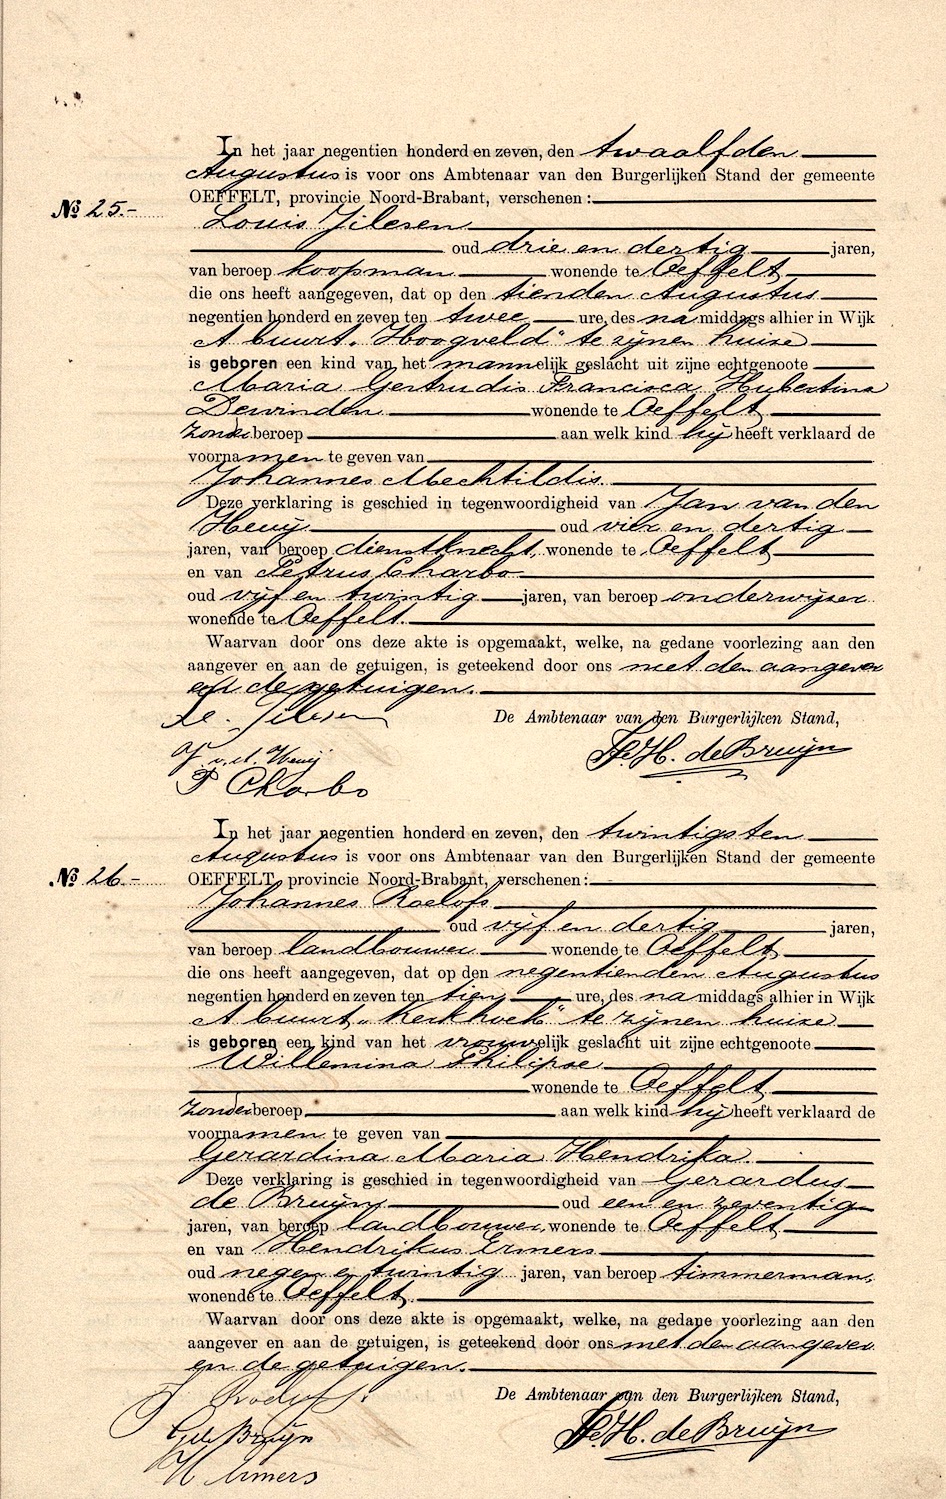 In het jaar negentien honderd en zeven, den twaalfden
Augustus is voor ons Ambtenaar van den Burgerlijken Stand der gemeente
No 25.- OEFFELT, provincie Noord-Brabant, verschenen:
Louis Jilesen
oud drie en dertig jaren,
van beroep koopman wonende te Oeffelt
die ons heeft aangegeven, dat op den tienden Augustus
negentien honderd en zeven ten twee ure, des namiddags alhier in Wijk
A buurt „Hoogveld" te zijnen huize
is geboren een kind van het mannelijk geslacht uit zijne echtgenoote
Maria Gertrudis Francisca Hubertina
Derwinden wonende te Oeffelt
zonder beroep aan welk kind hij heeft verklaard de
voornamen te geven van
Johannes Mechtildis.
Deze verklaring is geschied in tegenwoordigheid van Jan van den
Heuij oud vier en dertig
jaren, van beroep dienstknecht, wonende te Oeffelt
en van Petrus Charbo
oud vijf en twintig jaren, van beroep onderwijzer
wonende te Oeffelt.
Waarvan door ons deze akte is opgemaakt, welke, na gedane voorlezing aan den
aangever en aan de getuigen, is geteekend door ons met den aangever
en de getuigen.
Jilesen De Ambtenaar van den Burgerlijken Stand,
J. v. d. Heuij H. de Bruijn
P Charbo
In het jaar negentien honderd en zeven, den twintigsten
Augustus is voor ons Ambtenaar van den Burgerlijken Stand der gemeente
No 26.- OEFFELT, provincie Noord-Brabant, verschenen:
Johannes Roelofs
oud vijf en dertig jaren,
van beroep landbouwer wonende te Oeffelt
die ons heeft aangegeven, dat op den negentienden Augustus
negentien honderd en zeven ten tien ure, des namiddags alhier in Wijk
A buurt „Kerkhoek" te zijnen huize
is geboren een kind van het vrouwelijk geslacht uit zijne echtgenoote
Willemina Philipse
wonende te Oeffelt
zonder beroep aan welk kind hij heeft verklaard de
voornamen te geven van
Gerardina Maria Hendrika.
Deze verklaring is geschied in tegenwoordigheid van Gerardus
de Bruijn oud een en zeventig
jaren, van beroep landbouwer, wonende te Oeffelt
en van Hendrikus Ermers
oud negen en twintig jaren, van beroep timmerman,
wonende te Oeffelt.
Waarvan door ons deze akte is opgemaakt, welke, na gedane voorlezing aan den
aangever en aan de getuigen, is geteekend door ons met den aangever
en de getuigen.
J Roelofs. De Ambtenaar van den Burgerlijken Stand,
G de Bruijn H. de Bruijn
H Ermers